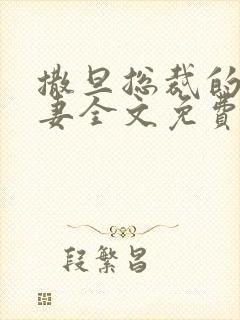 撒旦总裁的
妻全文免費
段繁昌